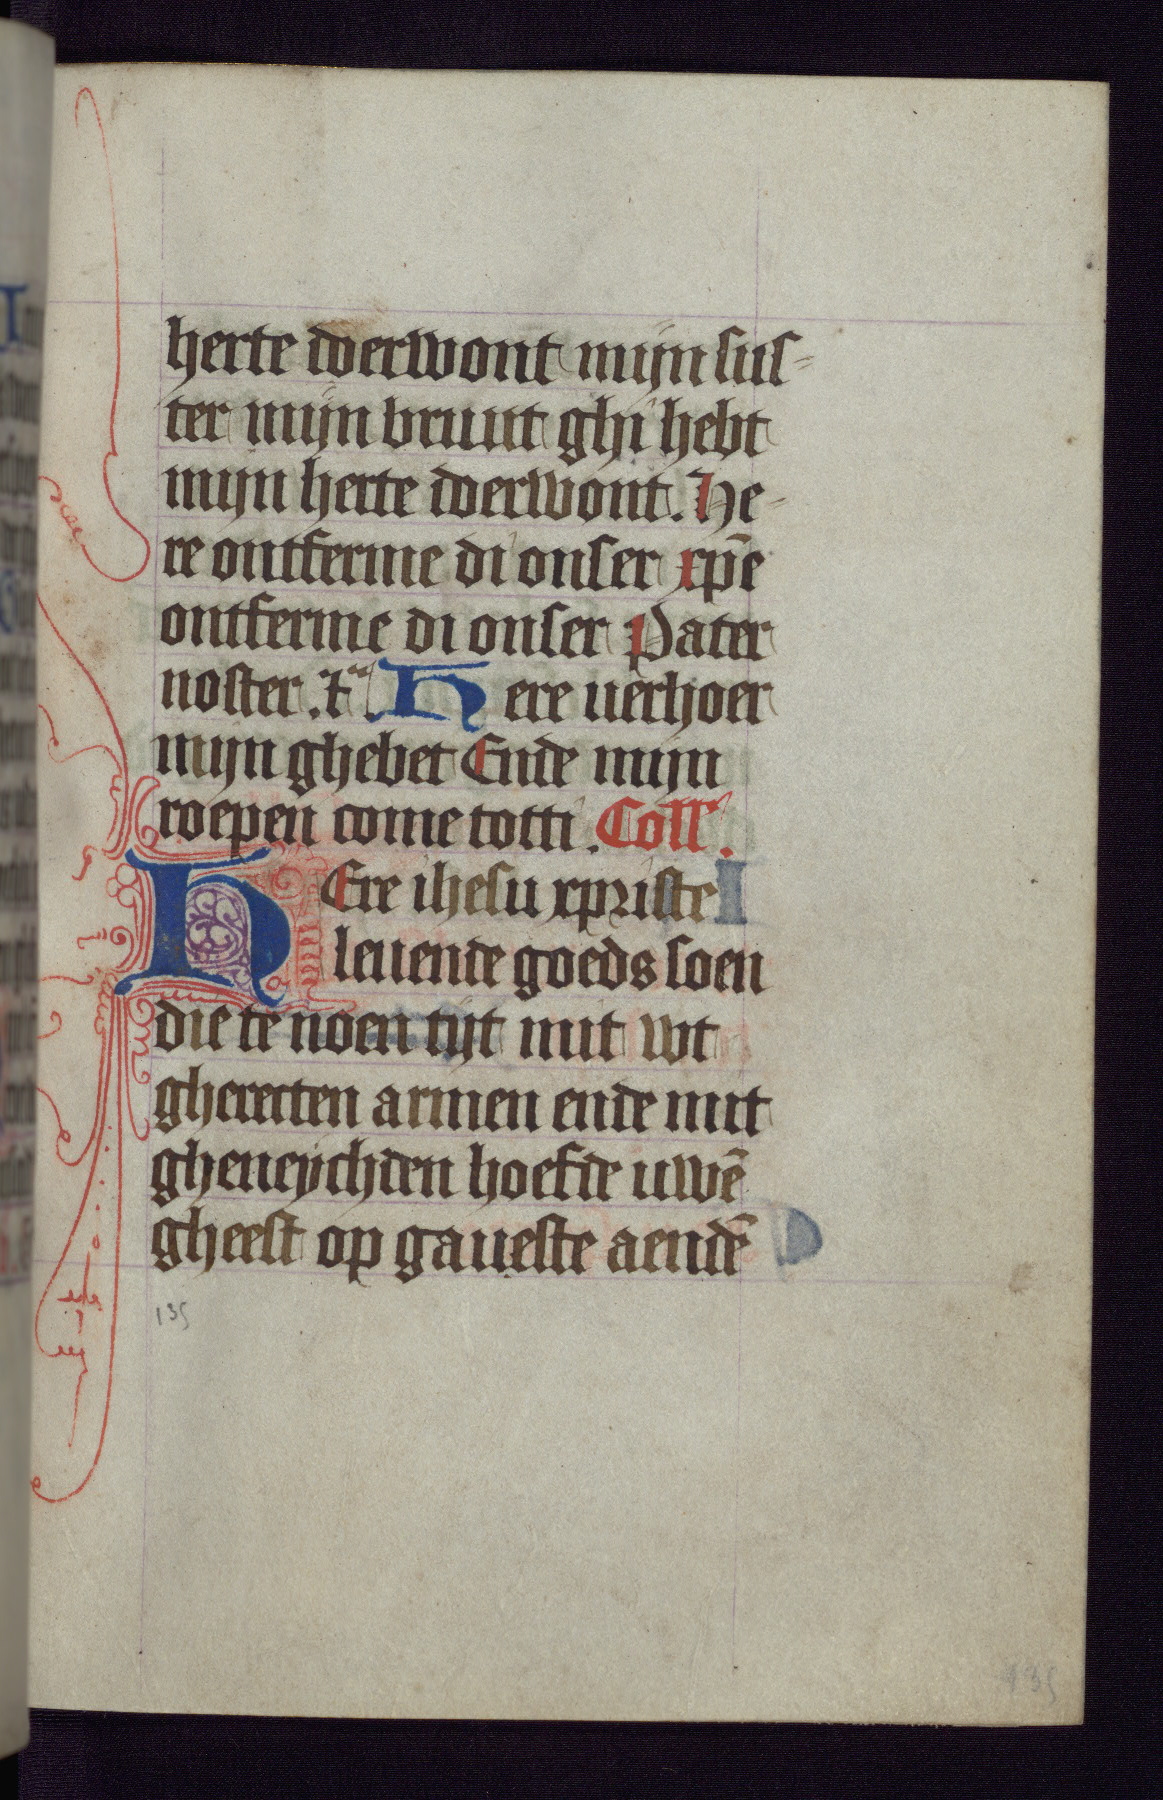 herte doerwont mijn sus-
ter mijn bruut ghi hebt
mijn herte doerwont. He-
re ontferme di onser xp̄e
ontferme di onser Pater
noster. Here uerhoer
mijn ghebet Ende mijn
roepen come totti. Coll'.
HEre ihesu xpriste
leuende goeds soen
die te noen tijt mit wt
gherecten armen ende mit
gheneychden hoefde uwē
gheest op gaueste aendē
135
135